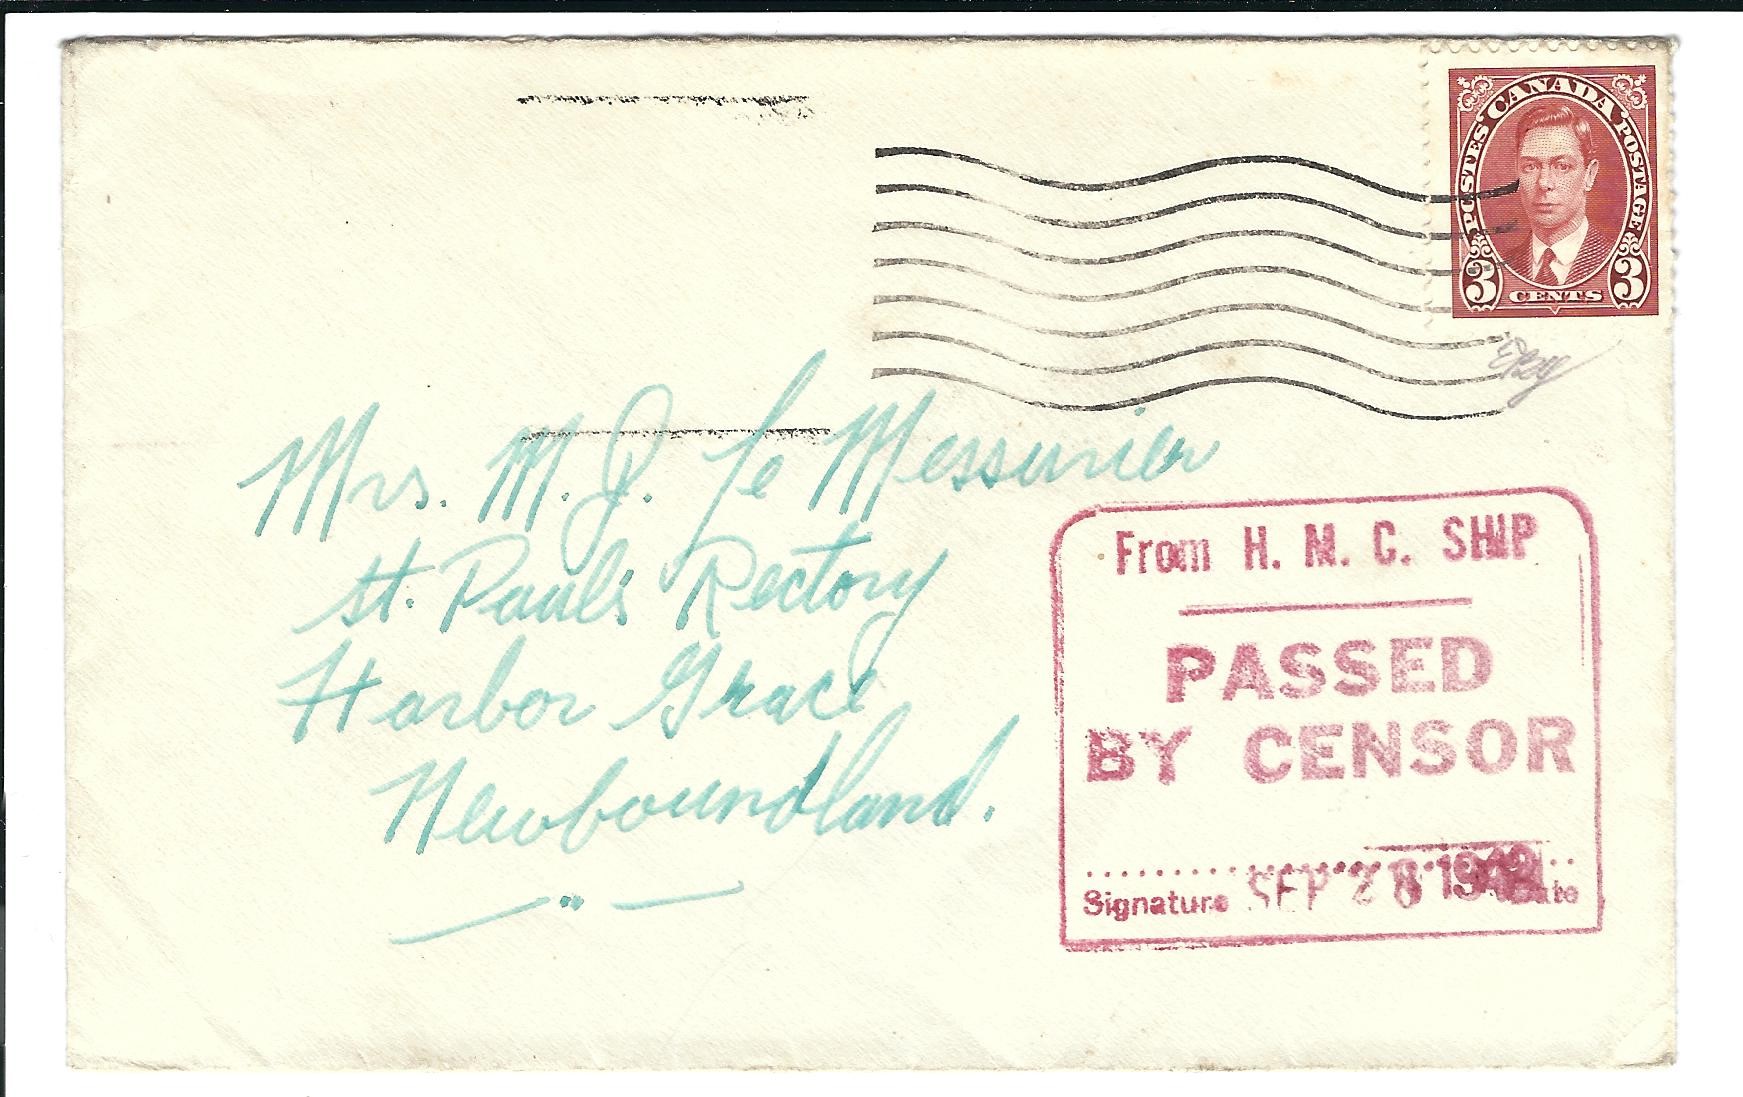 POSTES CANADA POSTAGE
3 CENTS 3
Mrs. M. J. Le Messurier
St. Paul's Rectory
Harbor Grace
Newfoundland.
From H. M. C. SHIP
PASSED
BY CENSOR
SEP 28
Signature Date